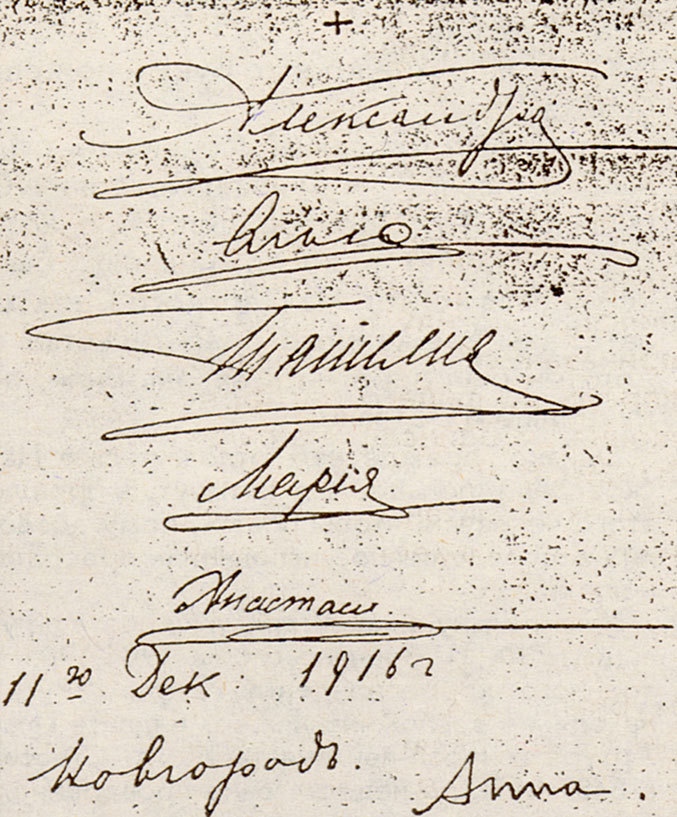 +
Александра
Ольга
Татьяна
Марія
Анастасі
11го Дек 1916 г
Новгородъ. Анна.